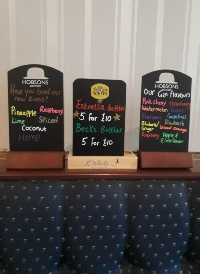 HOBSONS
Have you tried our
new Rums?
Pineapple Raspberry
Lime Spiced
Coconut
Hemp
Estrella bottles
5 for £10
Becks Bottles
5 for £10
HOBSONS
Our Gin Flavours
Pink cherry Strawberry
Rhubarb/
Ginger
Rhubarb
Blood Orange
Raspberry Apple &
Elderflower